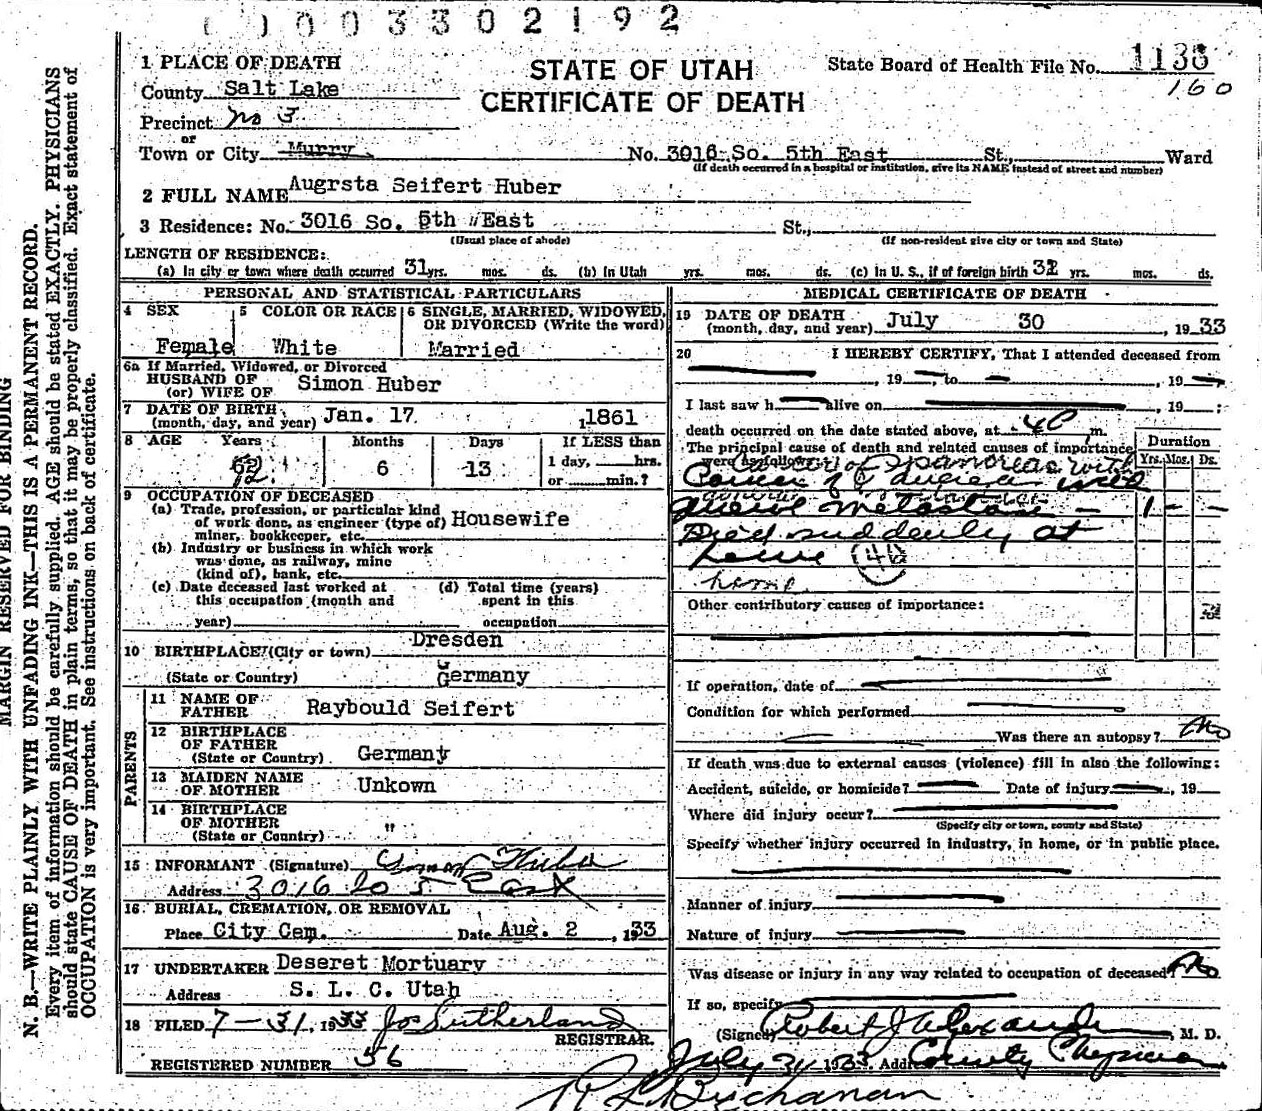 0003302192
1 PLACE OF DEATH
County Salt Lake
Precinct no 3
or
Town or City Murry
STATE OF UTAH
CERTIFICATE OF DEATH
State Board of Health File No. 1136
160
No. 3016 So. 5th East St., Ward
(If death occurred in a hospital or institution, give its NAME instead of street and number)
2 FULL NAME Augrsta Seifert Huber
3 Residence: No. 3016 So. 5th East St.,
(Usual place of abode) (If non-resident give city or town and State)
LENGTH OF RESIDENCE:
(a) In city or town where death occurred 31 yrs. mos. ds. (b) In Utah yrs. mos. ds. (c) in U. S., if of foreign birth 32 yrs. mos. ds.
PERSONAL AND STATISTICAL PARTICULARS
4 SEX
Female
5 COLOR OR RACE
White
6 SINGLE, MARRIED, WIDOWED,
OR DIVORCED (Write the word)
Married
6a If Married, Widowed, or Divorced
HUSBAND OF
(or) WIFE OF Simon Huber
7 DATE OF BIRTH
(month, day, and year) Jan. 17 1861
8 AGE Years Months Days If LESS than
72 6 13 1 day, hrs.
or min.?
9 OCCUPATION OF DECEASED
(a) Trade, profession, or particular kind
of work done, as engineer (type of) Housewife
miner, bookkeeper, etc.
(b) Industry or business in which work
was done, as railway, mine
(kind of), bank, etc.
(c) Date deceased last worked at
this occupation (month and
year)
(d) Total time (years)
spent in this
occupation
10 BIRTHPLACE (City or town) Dresden
(State or Country) Germany
PARENTS
11 NAME OF
FATHER Raybould Seifert
12 BIRTHPLACE
OF FATHER
(State or Country) Germany
13 MAIDEN NAME
OF MOTHER Unkown
14 BIRTHPLACE
OF MOTHER
(State or Country) "
15 INFORMANT (Signature) Simon Huber
Address 3016 So 5 East
16 BURIAL, CREMATION, OR REMOVAL
Place City Cem. Date Aug. 2, 1933
17 UNDERTAKER Deseret Mortuary
Address S. L. C. Utah
18 FILED 7-31, 1933 Jos Sutherland
REGISTRAR.
REGISTERED NUMBER 56
MEDICAL CERTIFICATE OF DEATH
19 DATE OF DEATH
(month, day, and year) July 30, 1933
20 I HEREBY CERTIFY, That I attended deceased from
, 19 , to , 19
I last saw h alive on , 19 ;
death occurred on the date stated above, at m.
The principal cause of death and related causes of importance
were as follows:
Cancer of pancreas with
general metastases
Died suddenly at
home 46
home
Duration
Yrs. Mos. Ds.
1 - -
Other contributory causes of importance:
If operation, date of
Condition for which performed
Was there an autopsy? No
If death was due to external causes (violence) fill in also the following:
Accident, suicide, or homicide? Date of injury , 19
Where did injury occur?
(Specify city or town, county and State)
Specify whether injury occurred in industry, in home, or in public place.
Manner of injury
Nature of injury
Was disease or injury in any way related to occupation of deceased? No
If so, specify
(Signed) Robert J Alexander, M. D.
July 31 1933. Addr County Physician
R L Buchanan
MARGIN RESERVED FOR BINDING
N. B.—WRITE PLAINLY WITH UNFADING INK—THIS IS A PERMANENT RECORD.
Every item of information should be carefully supplied. AGE should be stated EXACTLY. PHYSICIANS
should state CAUSE OF DEATH in plain terms, so that it may be properly classified. Exact statement of
OCCUPATION is very important. See instructions on back of certificate.